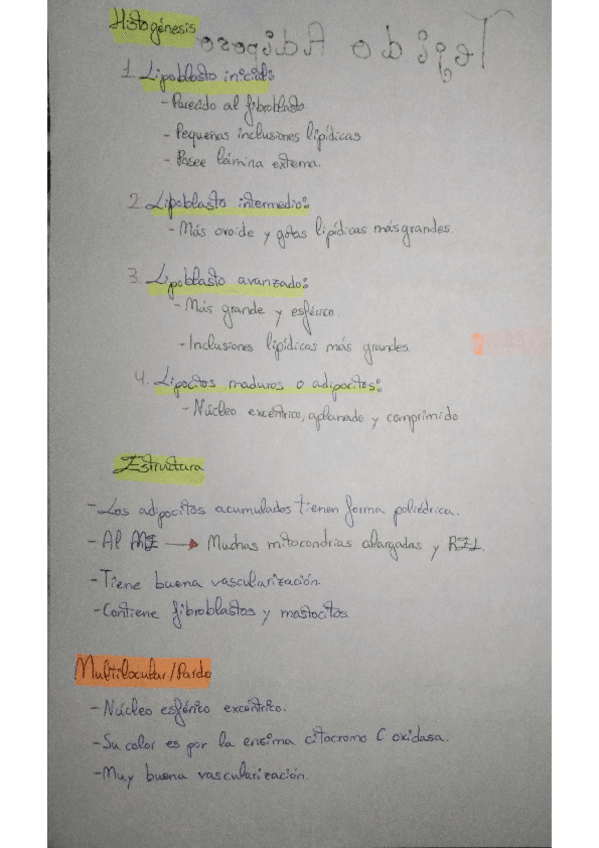 Histogénesis
Tejido Adiposo
1. Lipoblasto inicial:
- Parecido al fibroblasto
- Pequeñas inclusiones lipídicas
- Posee lámina externa.
2. Lipoblasto intermedio:
- Más ovoide y gotas lipídicas más grandes.
3. Lipoblasto avanzado:
- Más grande y esférico.
- Inclusiones lipídicas más grandes.
4. Lipocitos maduros o adipocitos:
- Núcleo excéntrico, aplanado y comprimido
Estructura
- Los adipocitos acumulados tienen forma poliédrica.
- Al ME → Muchas mitocondrias alargadas y REL.
- Tiene buena vascularización.
- Contiene fibroblastos y mastocitos
Multilocular/Pardo
- Núcleo esférico excéntrico.
- Su color es por la ensima citocromo C oxidasa.
- Muy buena vascularización.